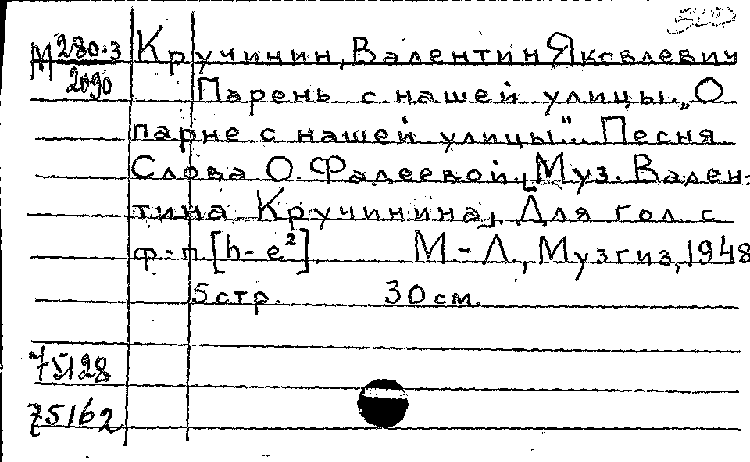 М 280-3
2090
Кручинин, Валентин Яковлевич
Парень с нашей улицы. „О
парне с нашей улицы". Песня
Слова О. Фадеевой, [Муз. Вален-
тина Кручинина], Для гол. с
ф-п. [h-e²] М-Л., Музгиз, 1948
5 стр. 30 см.
75128
75162